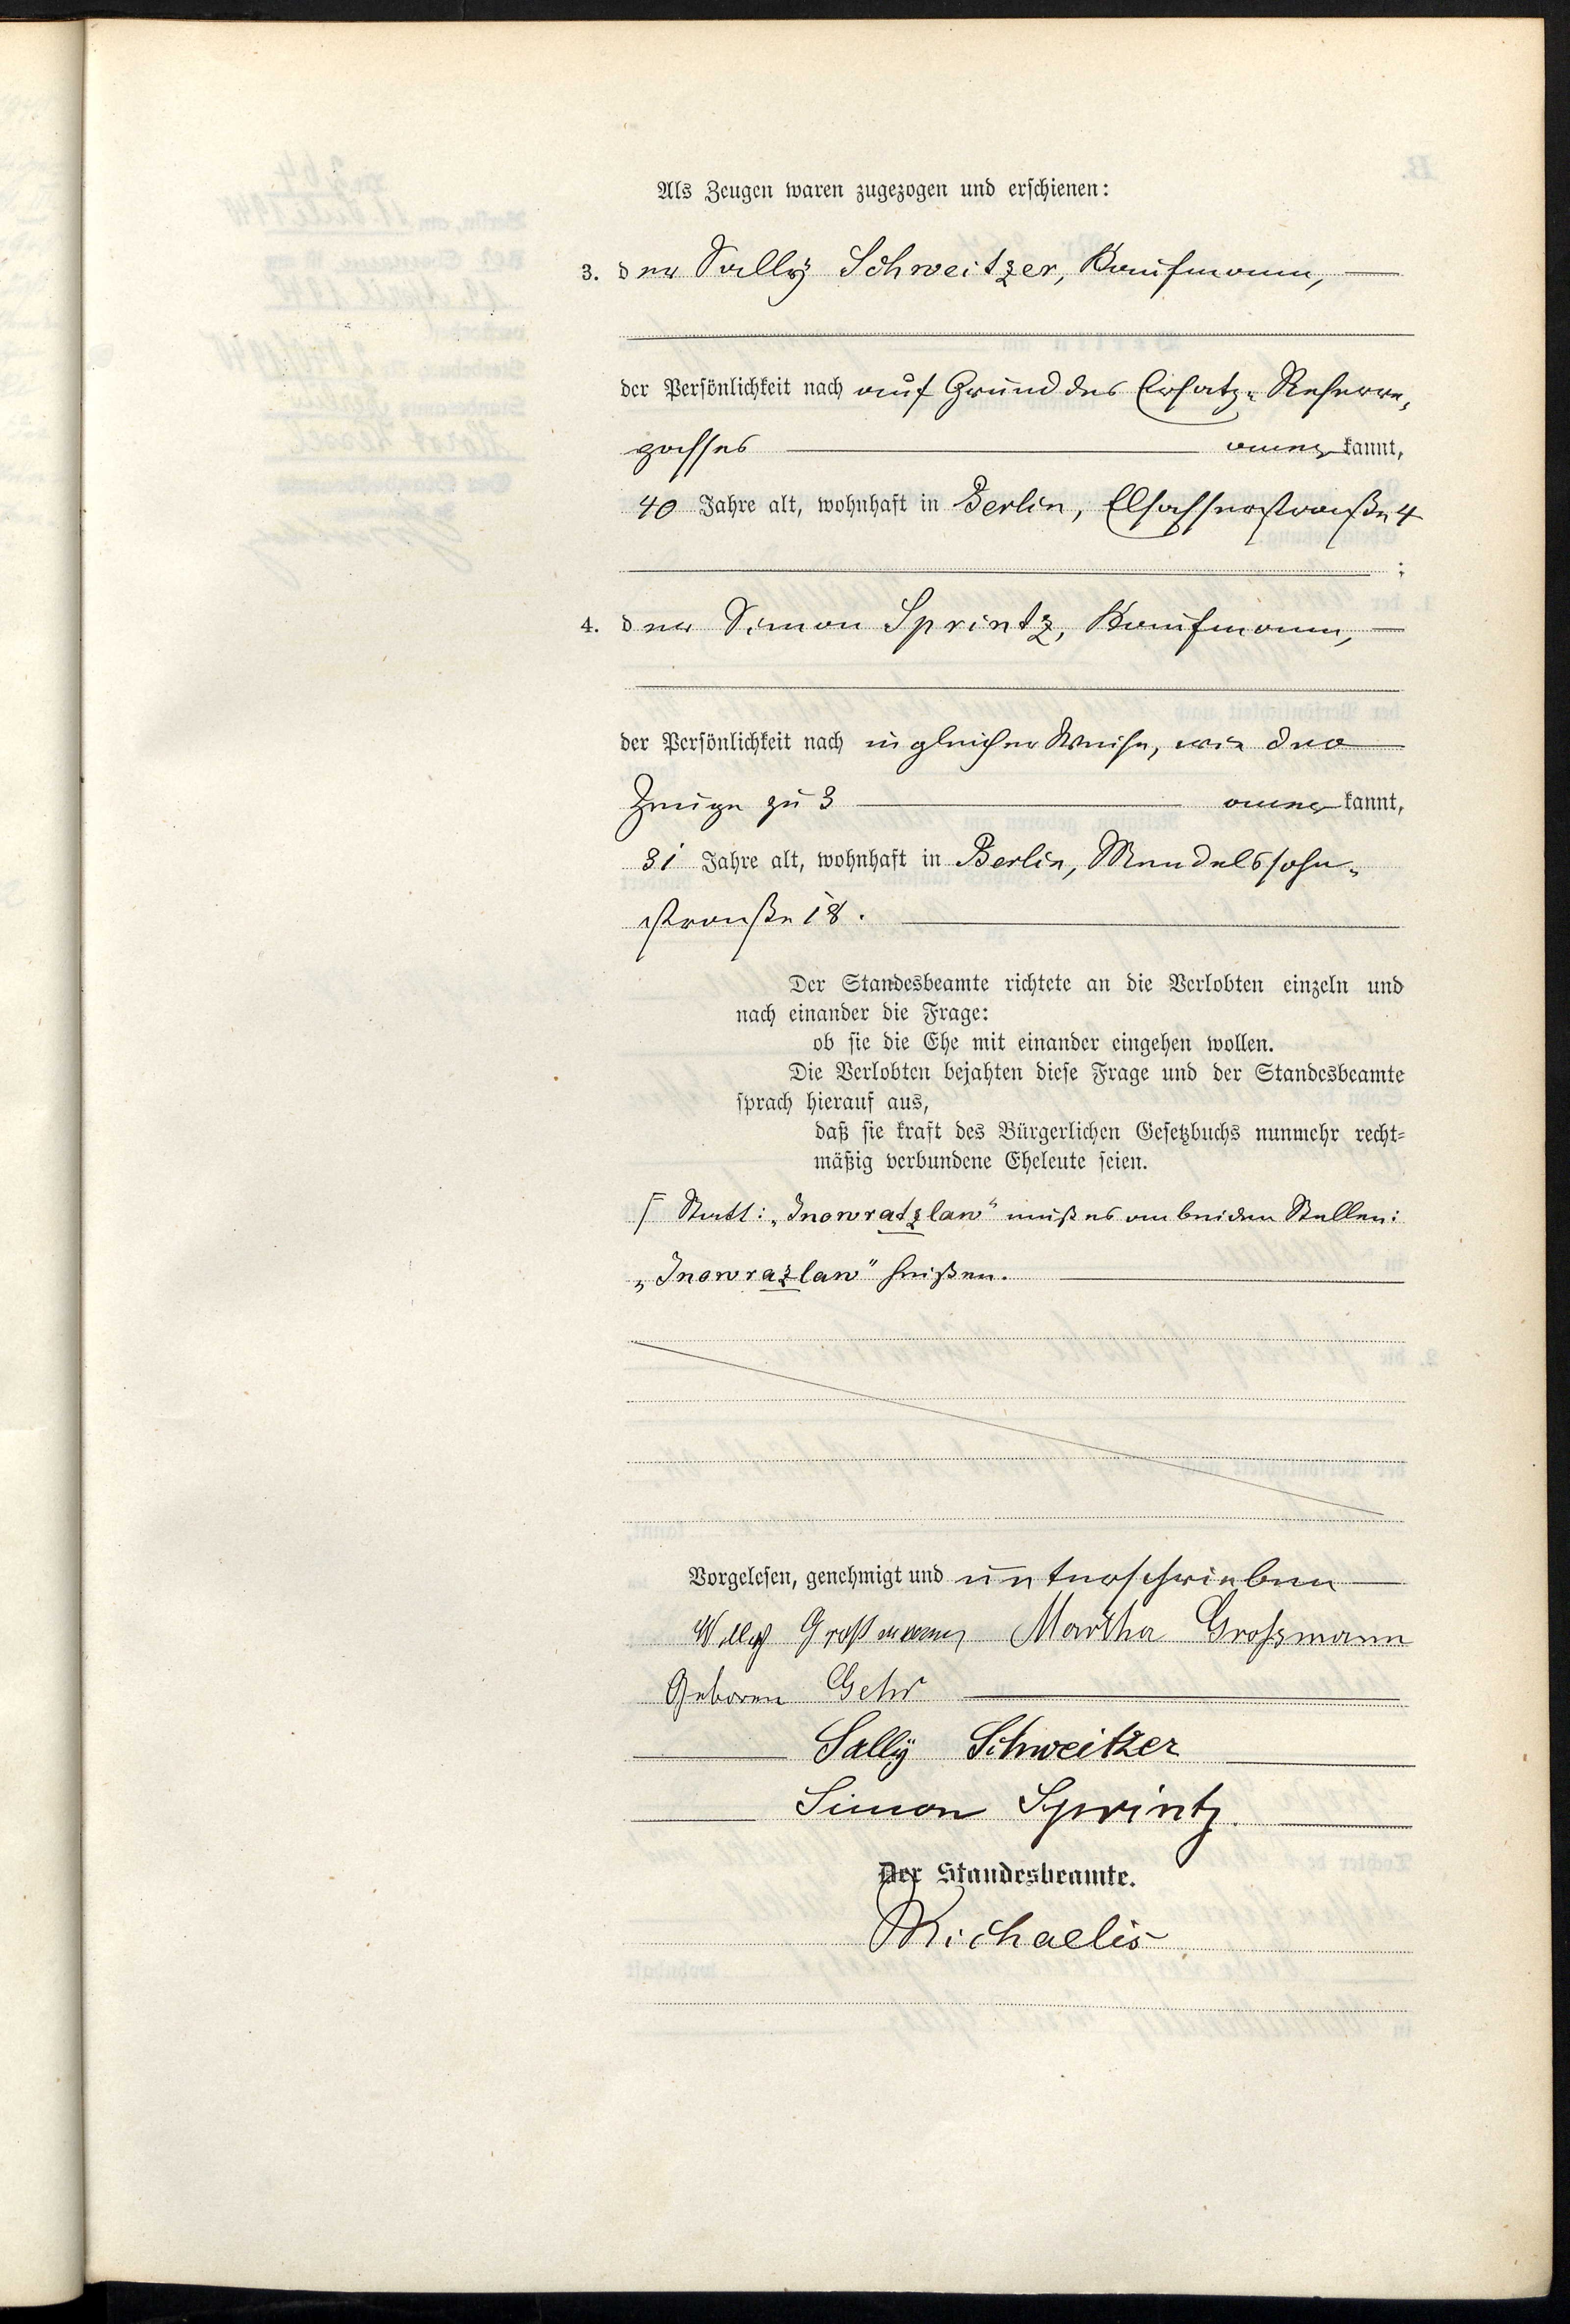 Als Zeugen waren zugezogen und erschienen:
3. der Sally Schweitzer, Kaufmann,
der Persönlichkeit nach auf Grund des Ersatz-Reserve-
passes anerkannt,
40 Jahre alt, wohnhaft in Berlin, Elsasserstraße 4
;
4. der Simon Sprintz, Kaufmann,
der Persönlichkeit nach in gleicher Weise, wie der
Zeuge zu 3 anerkannt,
31 Jahre alt, wohnhaft in Berlin, Mendelssohn-
straße 18.
Der Standesbeamte richtete an die Verlobten einzeln und
nach einander die Frage:
ob sie die Ehe mit einander eingehen wollen.
Die Verlobten bejahten diese Frage und der Standesbeamte
sprach hierauf aus,
daß sie kraft des Bürgerlichen Gesetzbuchs nunmehr recht-
mäßig verbundene Eheleute seien.
Statt: „Inowratzlaw" muß es an beiden Stellen:
„Inowrazlaw" heißen.
Vorgelesen, genehmigt und unterschrieben
Willy Großmann Martha Grossmann
Geboren Gehr
Sally Schweitzer
Simon Sprintz.
Der Standesbeamte.
Michaelis